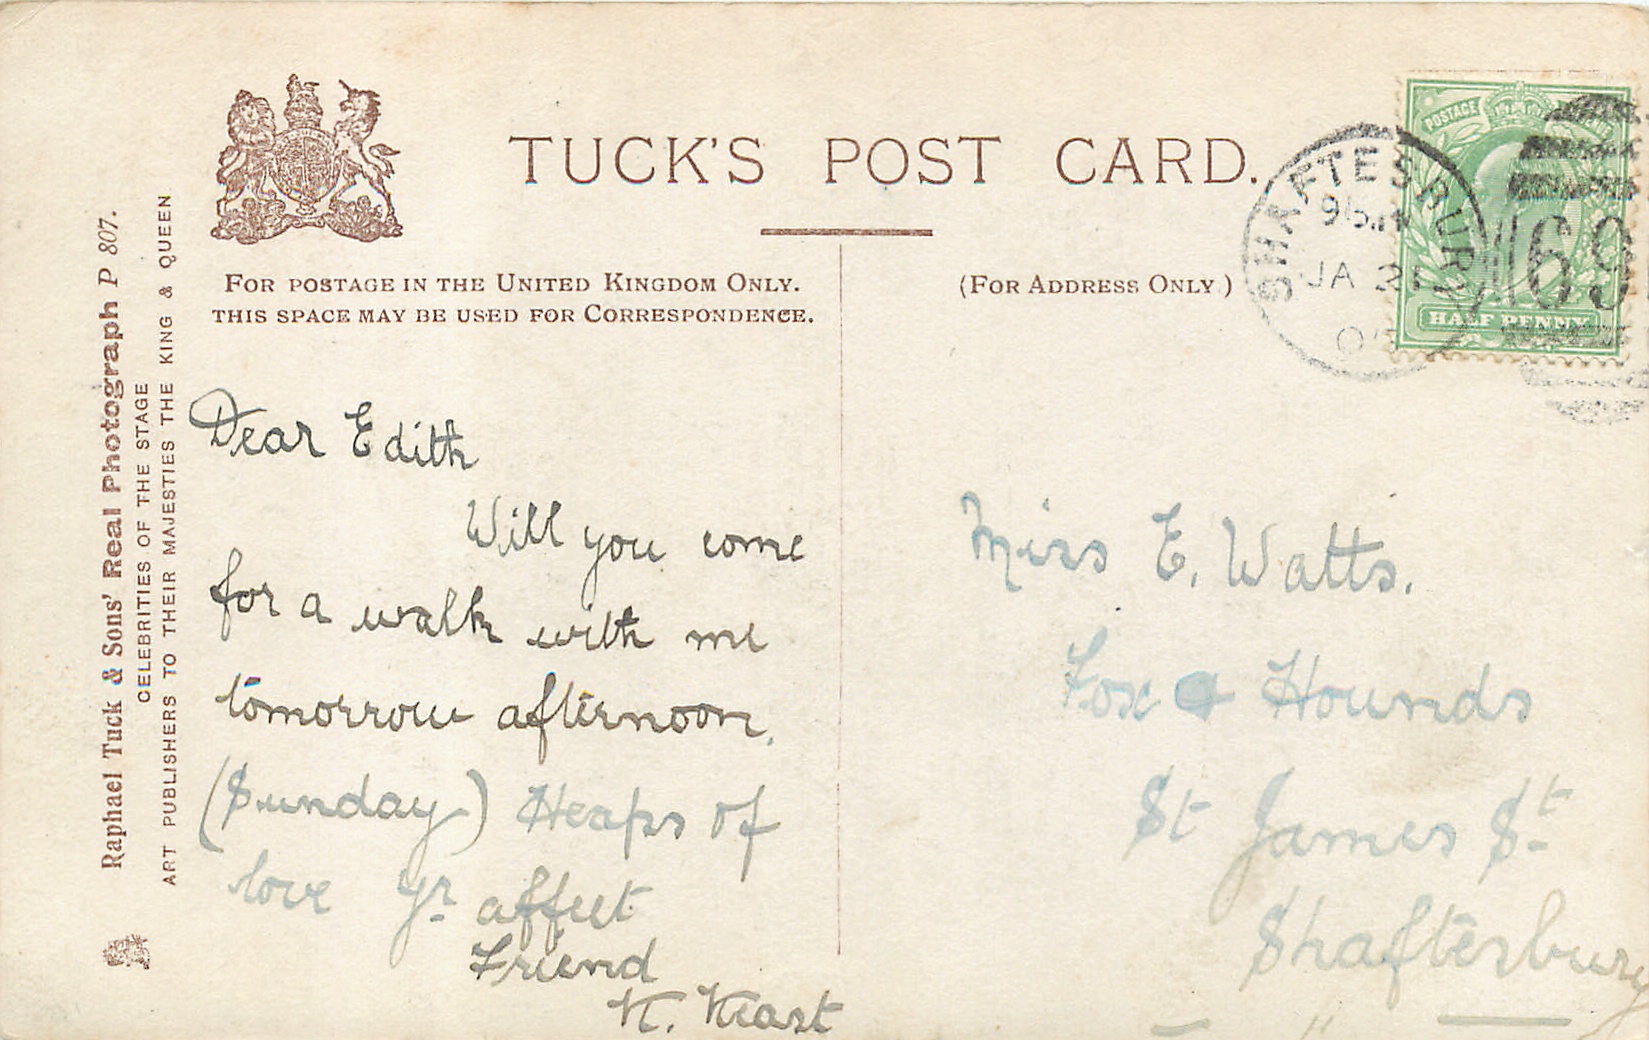 TUCK'S POST CARD.
FOR POSTAGE IN THE UNITED KINGDOM ONLY.
THIS SPACE MAY BE USED FOR CORRESPONDENCE.
(FOR ADDRESS ONLY)
Raphael Tuck & Sons' Real Photograph P 807.
CELEBRITIES OF THE STAGE
ART PUBLISHERS TO THEIR MAJESTIES THE KING & QUEEN
POSTAGE
HALF PENNY
SHAFTESBURY
JA 21
69
Dear Edith
Will you come
for a walk with me
tomorrow afternoon.
(Sunday) Heaps of
love yr affect
Friend
K. Keast
Miss E. Watts.
Fox & Hounds
St James St
Shaftesbury